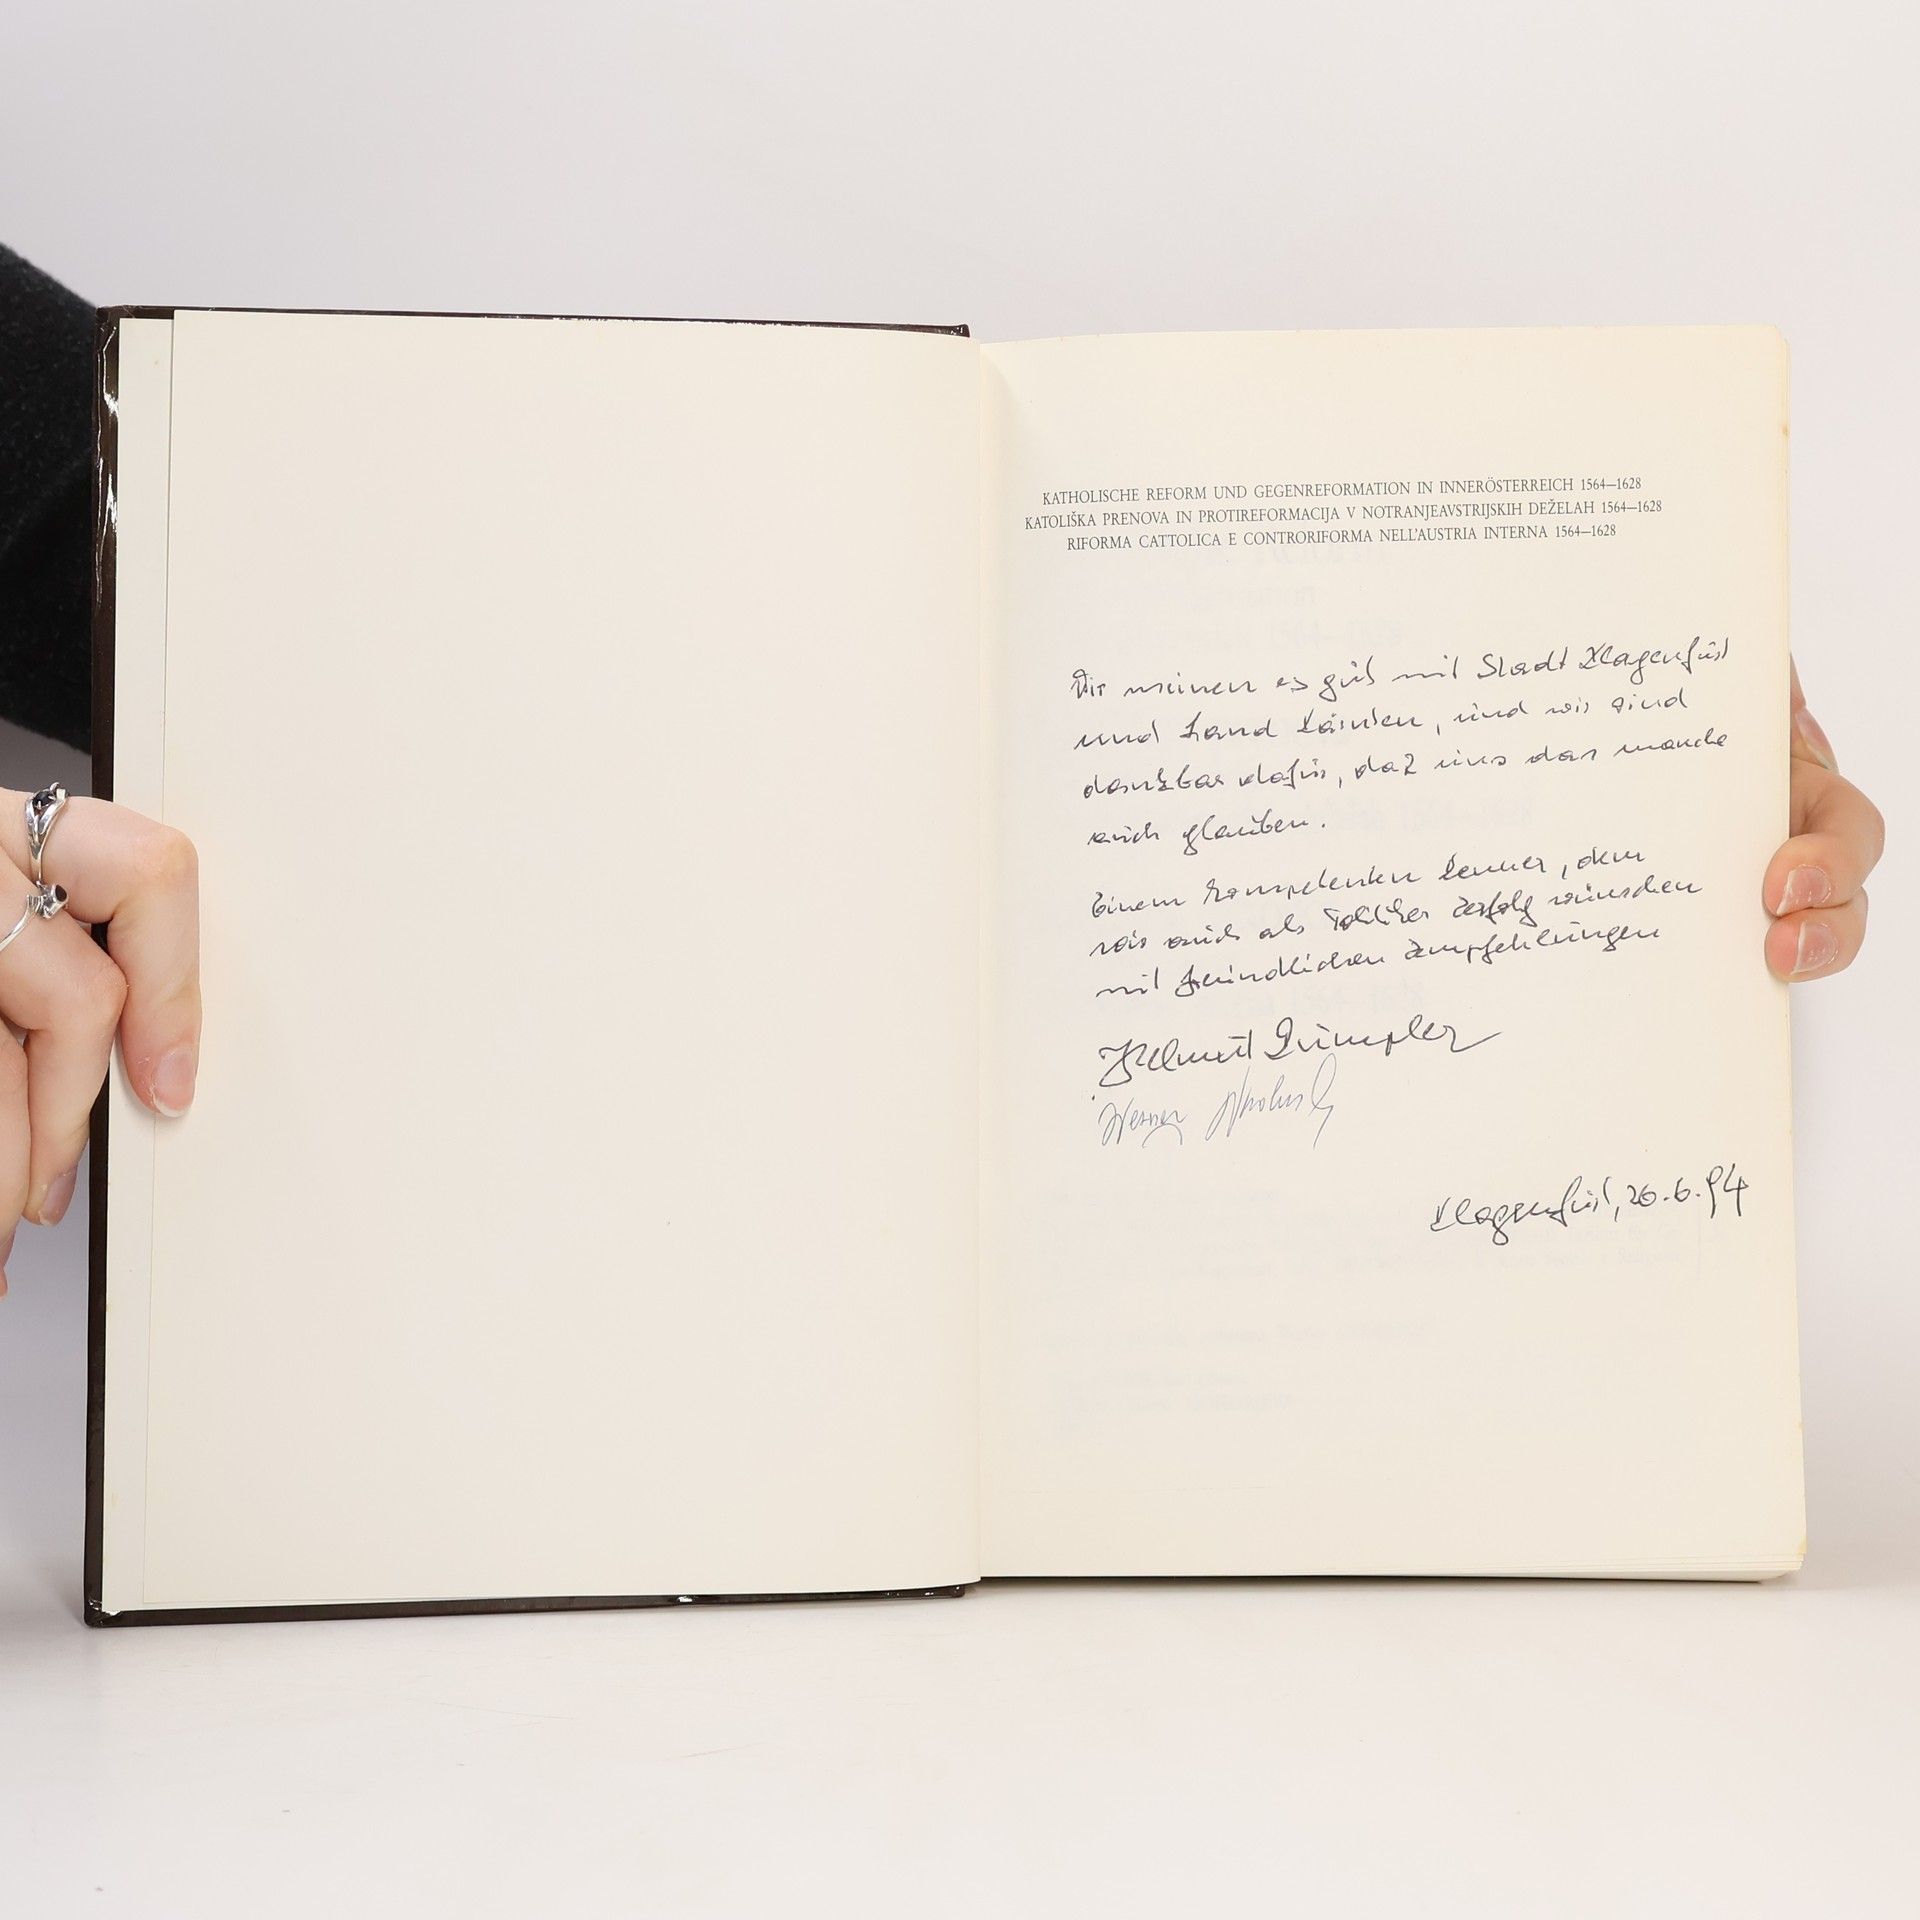 KATHOLISCHE REFORM UND GEGENREFORMATION IN INNERÖSTERREICH 1564–1628
KATOLIŠKA PRENOVA IN PROTIREFORMACIJA V NOTRANJEAVSTRIJSKIH DEŽELAH 1564–1628
RIFORMA CATTOLICA E CONTRORIFORMA NELL'AUSTRIA INTERNA 1564–1628
Wir meinen es gut mit Stadt Klagenfurt
und Land Kärnten, und wir sind
dankbar dafür, daß uns das manche
auch glauben.
Einem kompetenten Kenner, dem
wir auch als Politiker Erfolg wünschen
mit freundlichen Empfehlungen
Helmut Rumpler
Werner
Klagenfurt, 26.6.94